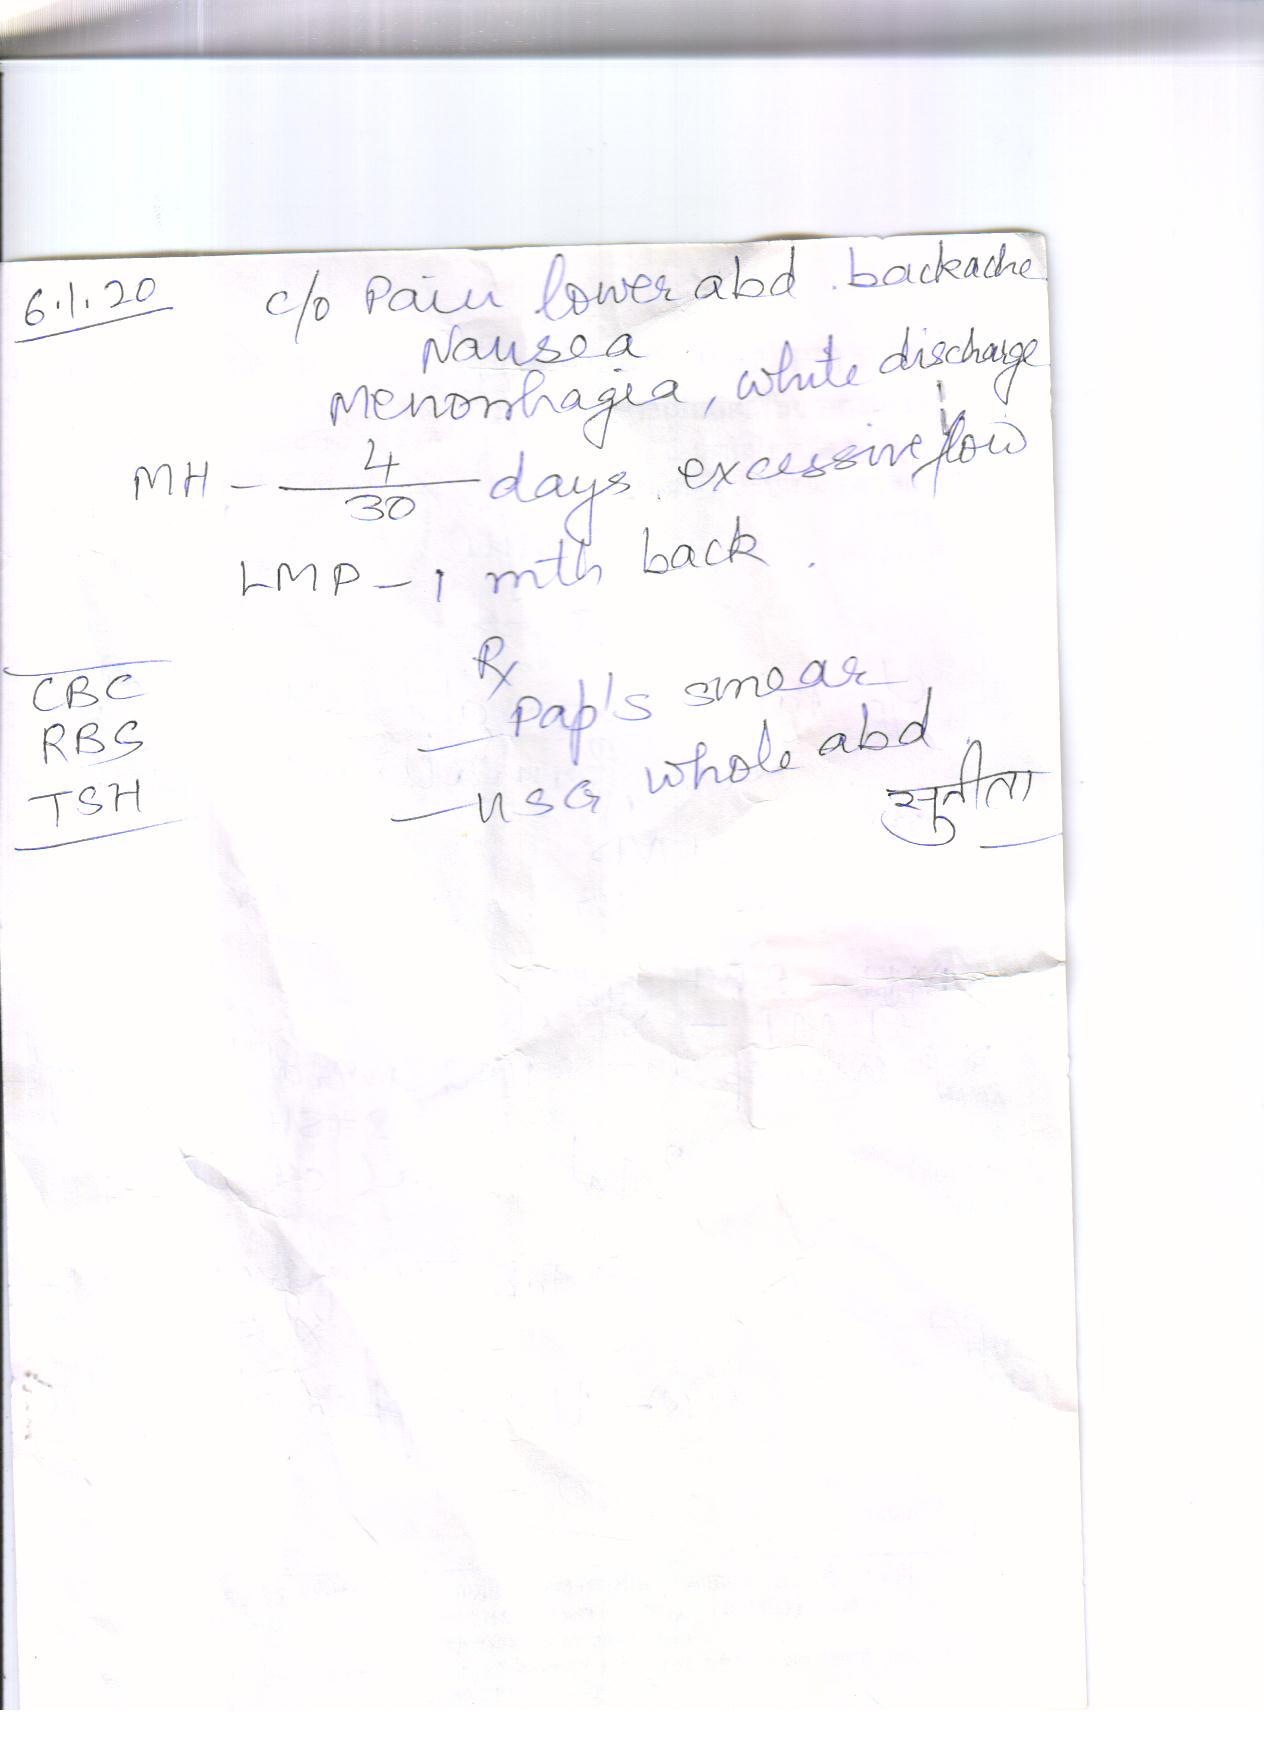 6.1.20 c/o Pain lower abd. backache
Nausea
Menorrhagia, white discharge
MH - 4/30 days. excessive flow
LMP - 1 mth back.
Rx
CBC
RBS
TSH
— Pap's smear
— USG, whole abd.
सुनीता